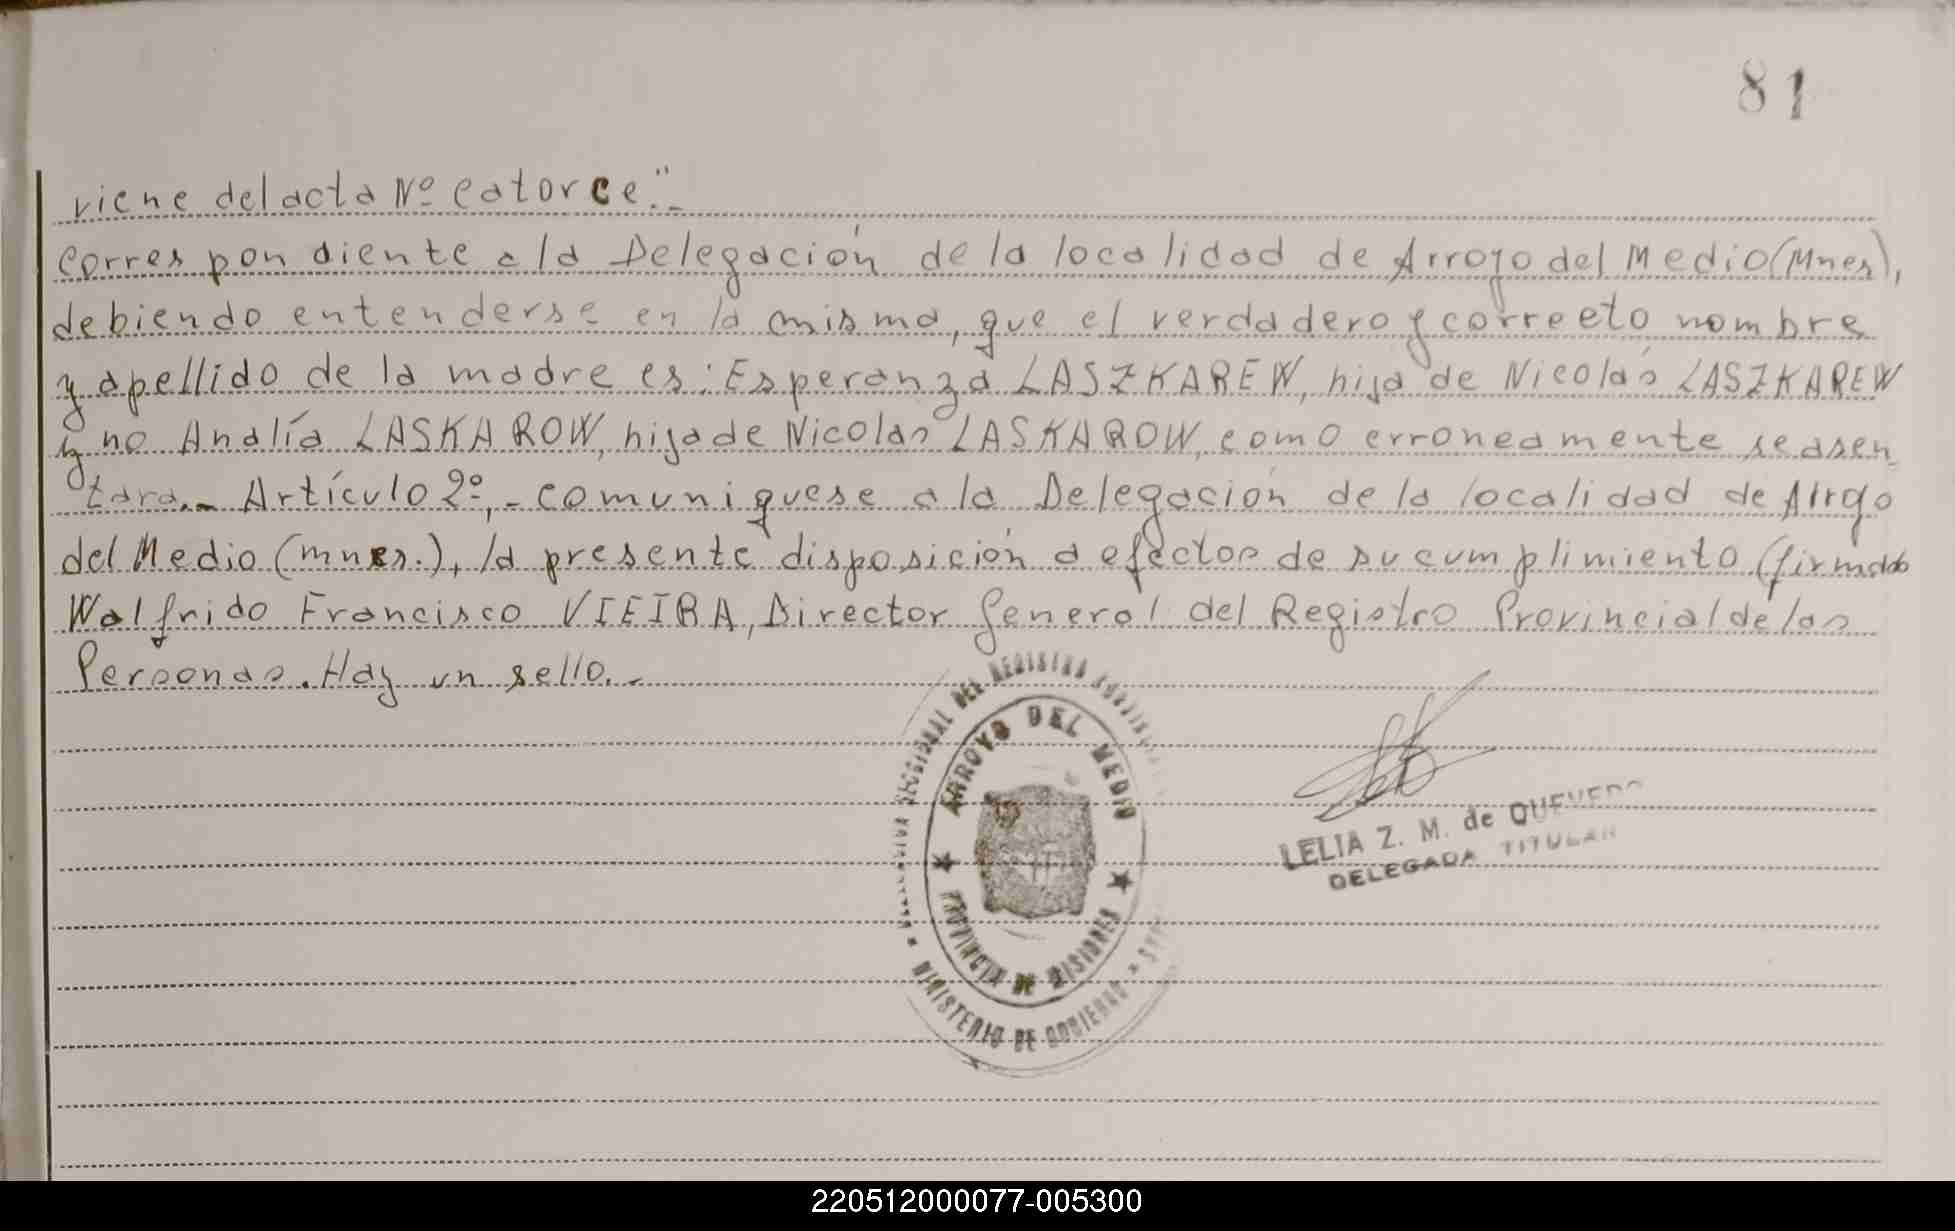 81
viene del acta Nº catorce."-
correspondiente a la Delegación de la localidad de Arroyo del Medio (Mnes),
debiendo entenderse en la misma, que el verdadero y correcto nombre
y apellido de la madre es: Esperanza LASZKAREW, hija de Nicolás LASZKAREW
y no Analía LASKAROW, hija de Nicolas LASKAROW, como erroneamente se asen
tara.- Artículo 2º,- comuniquese a la Delegación de la localidad de Arroyo
del Medio (mnes.), la presente disposición a efectos de su cumplimiento (firmado
Walfrido Francisco VIEIRA, Director General del Registro Provincial de las
Personas. Hay un sello.-
SECCIONAL DEL REGISTRO
ARROYO DEL MEDIO
PROVINCIA DE MISIONES
MINISTERIO DE GOBIERNO
LELIA Z. M. de QUEVEDO
DELEGADA TITULAR
220512000077-005300